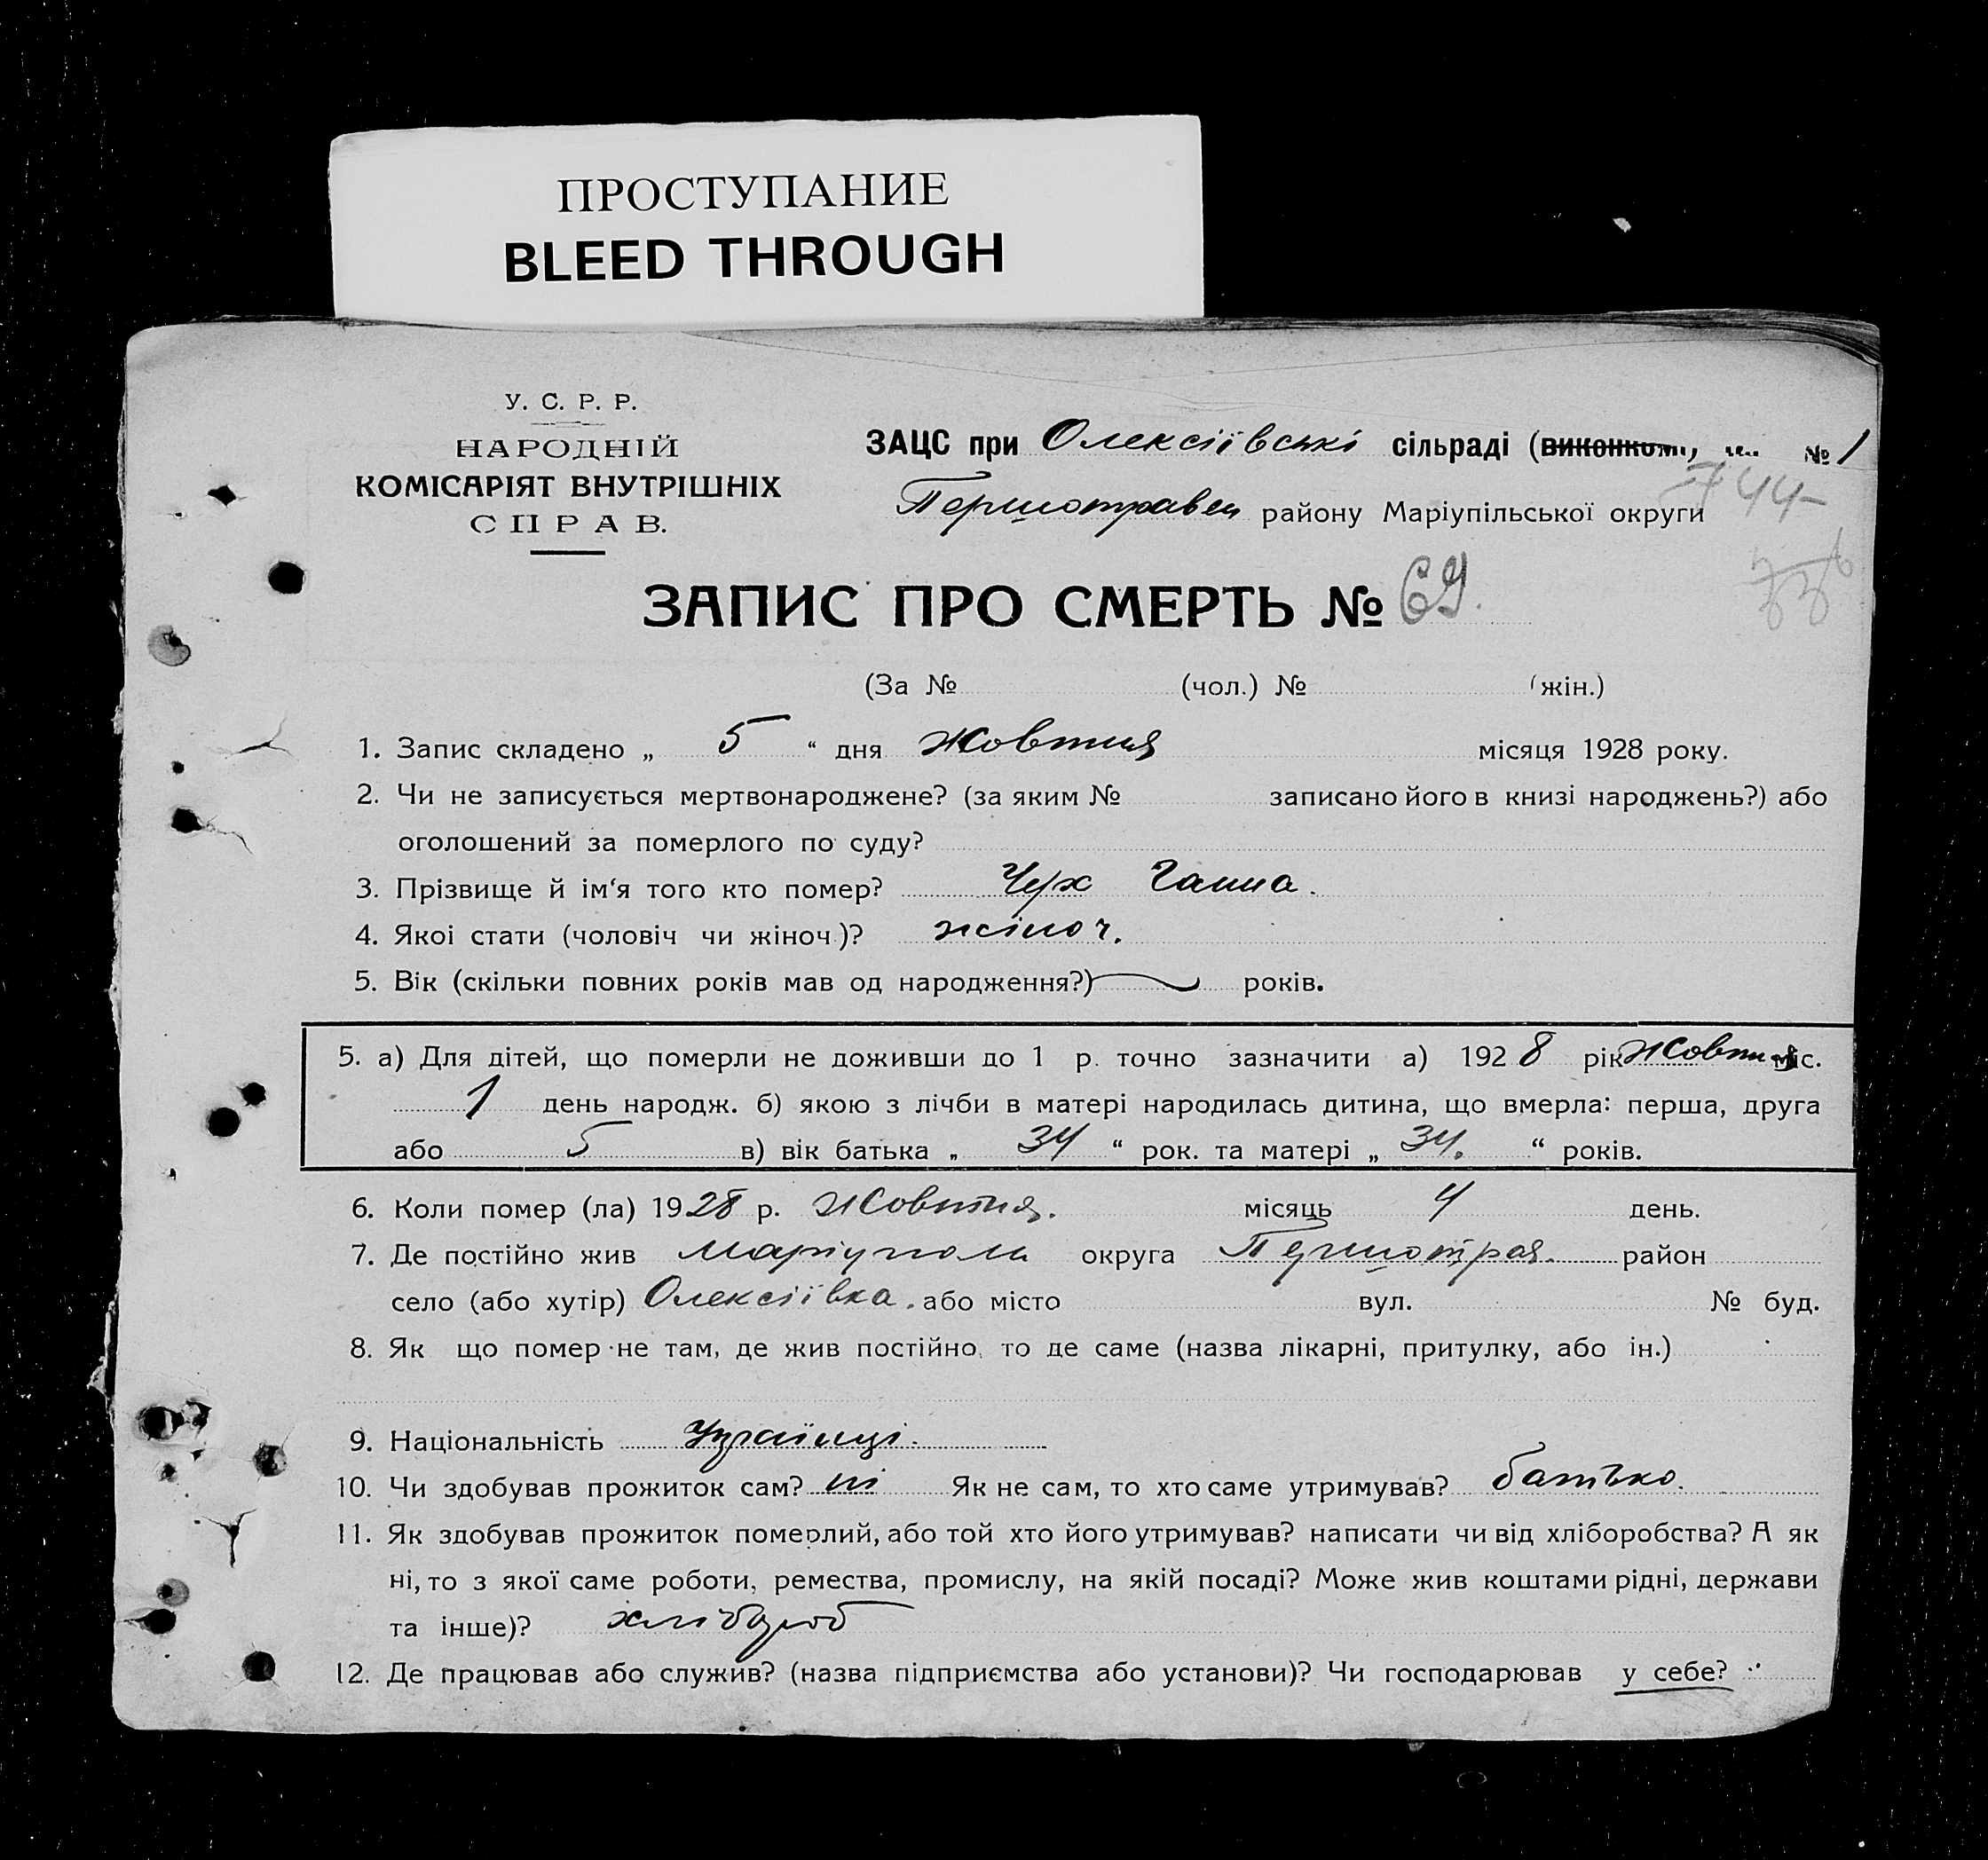 ПРОСТУПАНИЕ
BLEED THROUGH
У. С. Р. Р.
НАРОДНІЙ
КОМІСАРІЯТ ВНУТРІШНІХ
СПРАВ.
ЗАЦС при Олексіївські сільраді (виконкомі) № 1
Першотравен району Маріупільської округи
744
ЗАПИС ПРО СМЕРТЬ № 69.
(За № (чол.) № (жін.)
1. Запис складено „ 5 “ дня жовтня місяця 1928 року.
2. Чи не записується мертвонароджене? (за яким № записано його в книзі народжень?) або
оголошений за померлого по суду?
3. Прізвище й ім‘я того кто помер? Чух Ганна.
4. Якоі стати (чоловіч чи жіноч)? жіноч.
5. Вік (скільки повних років мав од народження?) років.
5. а) Для дітей, що померли не доживши до 1 р. точно зазначити а) 1928 рік жовтня міс.
1 день народж. б) якою з лічби в матері народилась дитина, що вмерла: перша, друга
або 5 в) вік батька „ 34 “ рок. та матері „ 34. “ років.
6. Коли помер (ла) 1928 р. жовтня. місяць 4 день.
7. Де постійно жив Маріуполь округа Першотрав. район
село (або хутір) Олексіївка. або місто вул. № буд.
8. Як що помер не там, де жив постійно, то де саме (назва лікарні, притулку, або ін.)
9. Національність Українці.
10. Чи здобував прожиток сам? ні Як не сам, то хто саме утримував? батько.
11. Як здобував прожиток померлий, або той хто його утримував? написати чи від хліборобства? А як
ні, то з якої саме роботи, ремества, промислу, на якій посаді? Може жив коштами рідні, держави
та інше)? хлібороб
12. Де працював або служив? (назва підприємства або установи)? Чи господарював у себе?